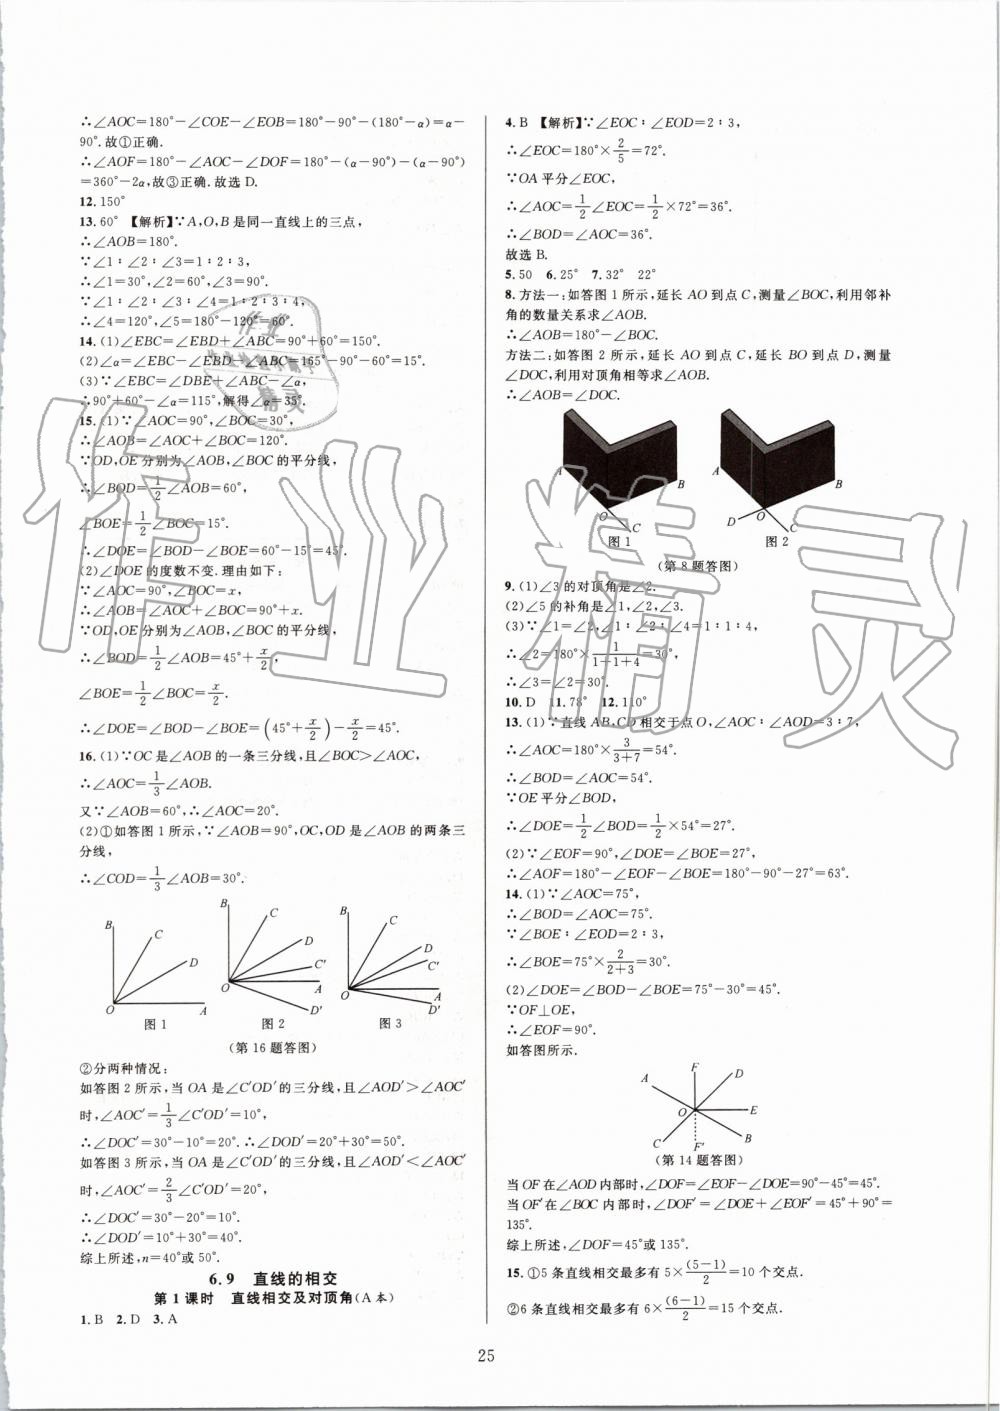 ∴∠AOC=180°-∠COE-∠EOB=180°-90°-(180°-α)=α-
90°.故①正确.
∴∠AOF=180°-∠AOC-∠DOF=180°-(α-90°)-(α-90°)
=360°-2α,故③正确.故选 D.
12.150°
13.60° 【解析】∵A,O,B是同一直线上的三点,
∴∠AOB=180°.
∵∠1∶∠2∶∠3=1∶2∶3,
∴∠1=30°,∠2=60°,∠3=90°.
∵∠1∶∠2∶∠3∶∠4=1∶2∶3∶4,
∴∠4=120°,∠5=180°-120°=60°.
14.(1)∠EBC=∠EBD+∠ABC=90°+60°=150°.
(2)∠α=∠EBC-∠EBD-∠ABC=165°-90°-60°=15°.
(3)∵∠EBC=∠DBE+∠ABC-∠α,
∴90°+60°-α=115°,解得∠α=35°.
15.(1)∵∠AOC=90°,∠BOC=30°,
∴∠AOB=∠AOC+∠BOC=120°.
∵OD,OE分别为∠AOB,∠BOC的平分线,
∴∠BOD=1/2∠AOB=60°,
∠BOE=1/2∠BOC=15°.
∴∠DOE=∠BOD-∠BOE=60°-15°=45°.
(2)∠DOE的度数不变.理由如下:
∵∠AOC=90°,∠BOC=x,
∴∠AOB=∠AOC+∠BOC=90°+x.
∵OD,OE分别为∠AOB,∠BOC的平分线,
∴∠BOD=1/2∠AOB=45°+x/2,
∠BOE=1/2∠BOC=x/2.
∴∠DOE=∠BOD-∠BOE=(45°+x/2)-x/2=45°.
16.(1)∵OC是∠AOB的一条三分线,且∠BOC>∠AOC,
∴∠AOC=1/3∠AOB.
又∵∠AOB=60°,∴∠AOC=20°.
(2)①如答图1所示,∵∠AOB=90°,OC,OD是∠AOB的两条三
分线,
∴∠COD=1/3∠AOB=30°.
B C D O A
图1
B C D C′ A D′ O
图2
B C D C′ A D′ O
图3
(第16题答图)
②分两种情况:
如答图2所示,当OA是∠C′OD′的三分线,且∠AOD′>∠AOC′
时,∠AOC′=1/3∠C′OD′=10°,
∴∠DOC′=30°-10°=20°.∴∠DOD′=20°+30°=50°.
如答图3所示,当OA是∠C′OD′的三分线,且∠AOD′<∠AOC′
时,∠AOC′=2/3∠C′OD′=20°,
∴∠DOC′=30°-20°=10°.
∴∠DOD′=10°+30°=40°.
综上所述,n=40°或50°.
6.9 直线的相交
第1课时 直线相交及对顶角(A本)
1.B 2.D 3.A
4.B 【解析】∵∠EOC∶∠EOD=2∶3,
∴∠EOC=180°×2/5=72°.
∵OA平分∠EOC,
∴∠AOC=1/2∠EOC=1/2×72°=36°.
∴∠BOD=∠AOC=36°.
故选B.
5.50 6.25° 7.32° 22°
8.方法一:如答图1所示,延长AO到点C,测量∠BOC,利用邻补
角的数量关系求∠AOB.
∴∠AOB=180°-∠BOC.
方法二:如答图2所示,延长AO到点C,延长BO到点D,测量
∠DOC,利用对顶角相等求∠AOB.
∴∠AOB=∠DOC.
A B O C
图1
A B D O C
图2
(第8题答图)
9.(1)∠3的对顶角是∠2.
(2)∠5的补角是∠1,∠2,∠3.
(3)∵∠1=∠2,∠1∶∠2∶∠4=1∶1∶4,
∴∠2=180°×1/(1+1+4)=30°,
∴∠3=∠2=30°.
10.D 11.78° 12.110°
13.(1)∵直线AB,CD相交于点O,∠AOC∶∠AOD=3∶7,
∴∠AOC=180°×3/(3+7)=54°.
∴∠BOD=∠AOC=54°.
∵OE平分∠BOD,
∴∠DOE=1/2∠BOD=1/2×54°=27°.
(2)∵∠EOF=90°,∠DOE=∠BOE=27°,
∴∠AOF=180°-∠EOF-∠BOE=180°-90°-27°=63°.
14.(1)∵∠AOC=75°,
∴∠BOD=∠AOC=75°.
∵∠BOE∶∠EOD=2∶3,
∴∠BOE=75°×2/(2+3)=30°.
(2)∠DOE=∠BOD-∠BOE=75°-30°=45°.
∵OF⊥OE,
∴∠EOF=90°.
如答图所示.
A F D O E C F′ B
(第14题答图)
当OF在∠AOD内部时,∠DOF=∠EOF-∠DOE=90°-45°=45°.
当OF′在∠BOC内部时,∠DOF′=∠DOE+∠EOF′=45°+90°=
135°.
综上所述,∠DOF=45°或135°.
15.①5条直线相交最多有5×(5-1)/2=10个交点.
②6条直线相交最多有6×(6-1)/2=15个交点.
25
作业精灵